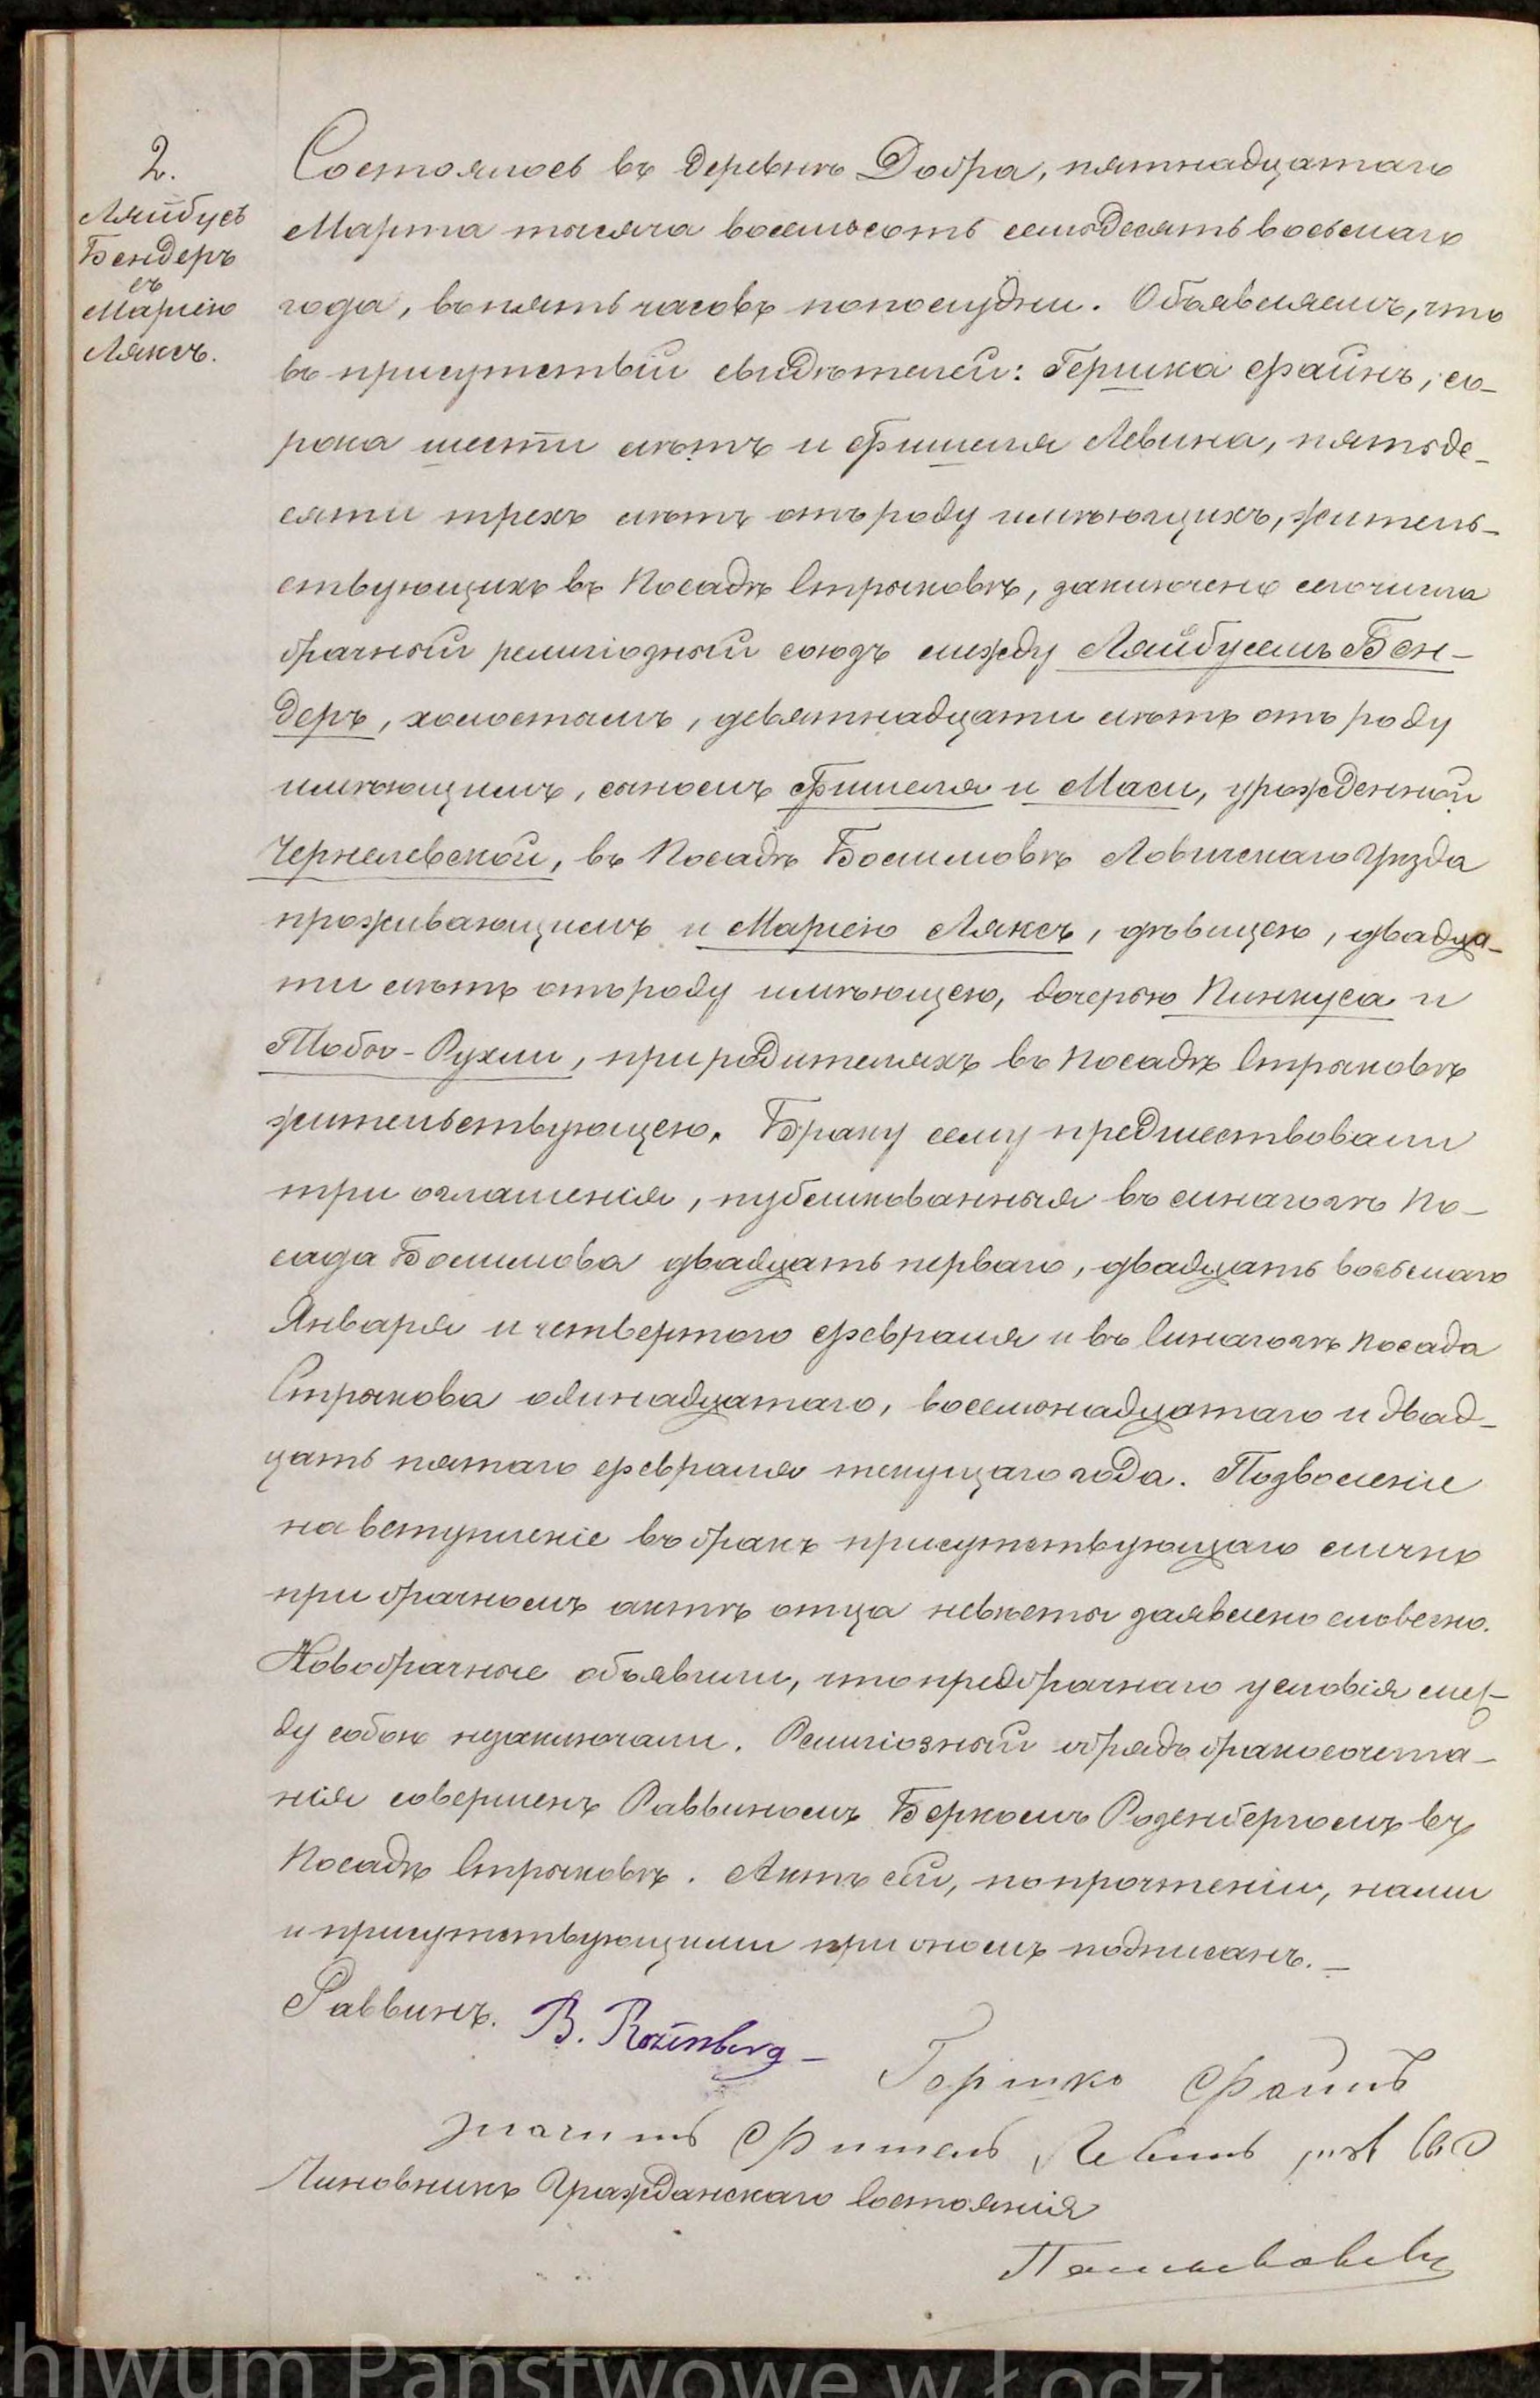 2.
Ляйбусь
Бендеръ
съ
Маріею
Ляксъ.
Состоялось въ деревнѣ Добра, пятнадцатаго
Марта тысяча восемьсотъ семьдесятъ восьмаго
года, въ пять часовъ пополудни. Объявляемъ, что
въ присутствіи свидѣтелей: Гершка Файнъ, со-
рока шести лѣтъ и Фишеля Левина, пятьде-
сяти трехъ лѣтъ отъ роду имѣющихъ, житель-
ствующихъ въ Посадѣ Стрыковѣ, заключенъ сего числа
брачный религіозный союзъ между Ляйбусемъ Бен-
деръ, холостымъ, девятнадцати лѣтъ отъ роду
имѣющимъ, сыномъ Фишеля и Маси, урожденной
Чернелевской, въ Посадѣ Болимовѣ Ловичскаго Уѣзда
проживающимъ и Маріею Ляксъ, дѣвицею, двадца-
ти лѣтъ отъ роду имѣющею, дочерью Пинкуса и
Тобы-Рухли, при родителяхъ въ Посадѣ Стрыковѣ
жительствующею. Браку сему предшествовали
три оглашенія, публикованныя въ синагогѣ По-
сада Болимова двадцать перваго, двадцать восьмаго
Января и четвертого Февраля и въ Синагогѣ Посада
Стрыкова одинадцатаго, восемьнадцатаго и двад-
цать пятаго Февраля текущаго года. Позволеніе
на вступленіе въ бракъ присутствующаго лично
при брачномъ актѣ отца невѣсты заявлено словесно.
Новобрачные объявили, что предбрачнаго условія меж-
ду собою незаключали. Религіозный обрядъ бракосочета-
нія совершенъ Раввиномъ Беркомъ Розенбергомъ въ
Посадѣ Стрыковѣ. Актъ сей, по прочтеніи, нами
и присутствующими при ономъ подписанъ.—
Раввинъ. B. Rozenberg —
Гершко Файнъ
значитъ Фишель Левинъ
Чиновникъ Гражданскаго Состоянія
chiwum Państwowe w Łodzi